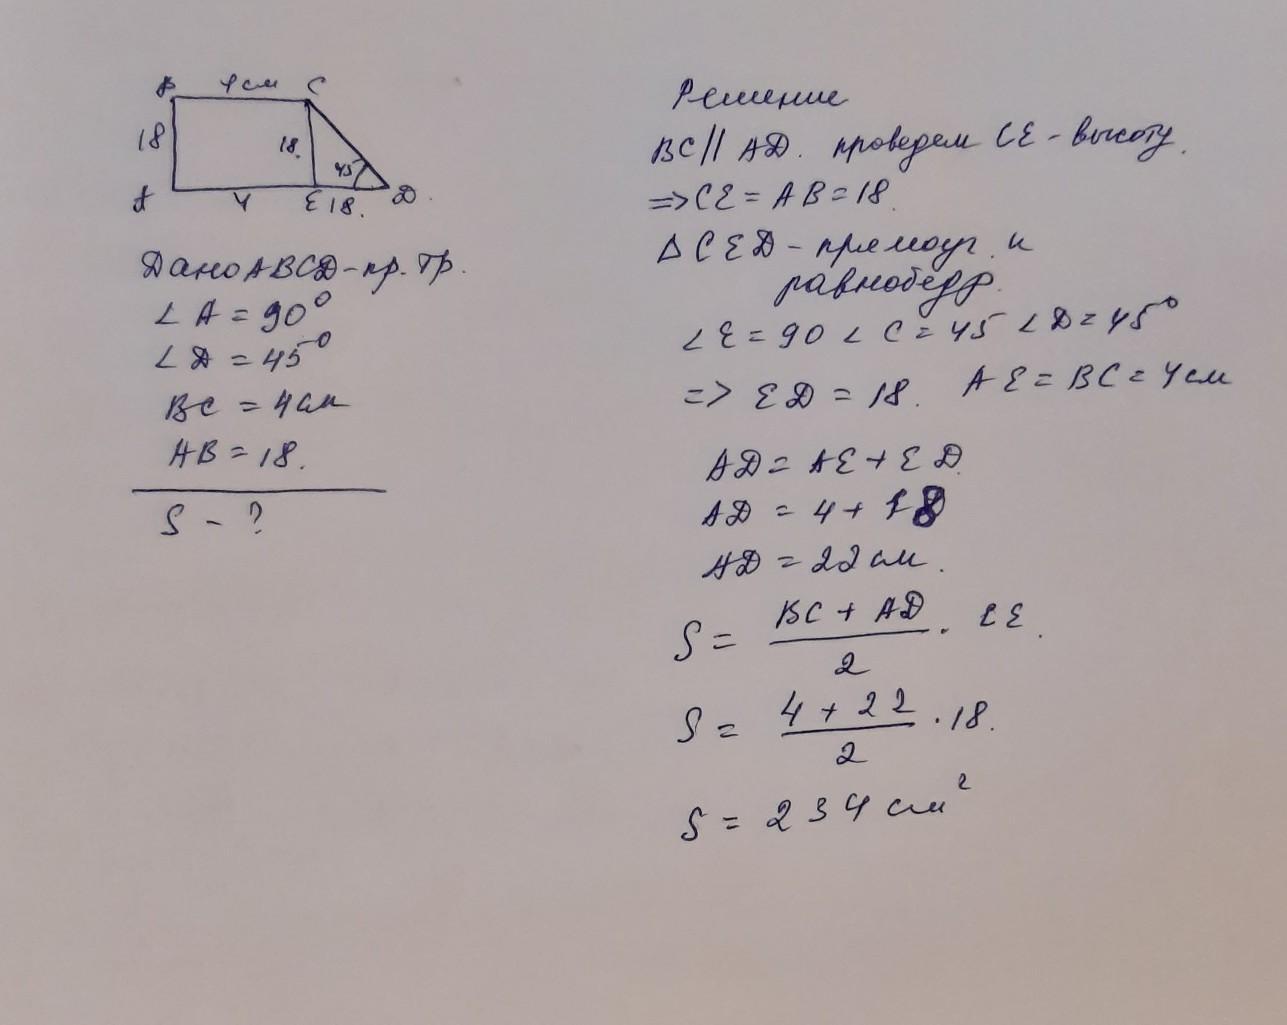 B 4см C
18 18. 45
A 4 E 18. D
Дано ABCD - пр. тр.
∠ A = 90°
∠ D = 45°
BC = 4см
AB = 18.
S - ?
Решение
BC || AD. проведем CE - высоту.
=> CE = AB = 18.
Δ CED - прямоуг. и
равнобедр.
∠ E = 90 ∠ C = 45 ∠ D = 45°
=> ED = 18. AE = BC = 4см
AD = AE + ED
AD = 4 + 18
AD = 22 см.
S = (BC + AD)/2 · CE.
S = (4 + 22)/2 · 18.
S = 234 см²